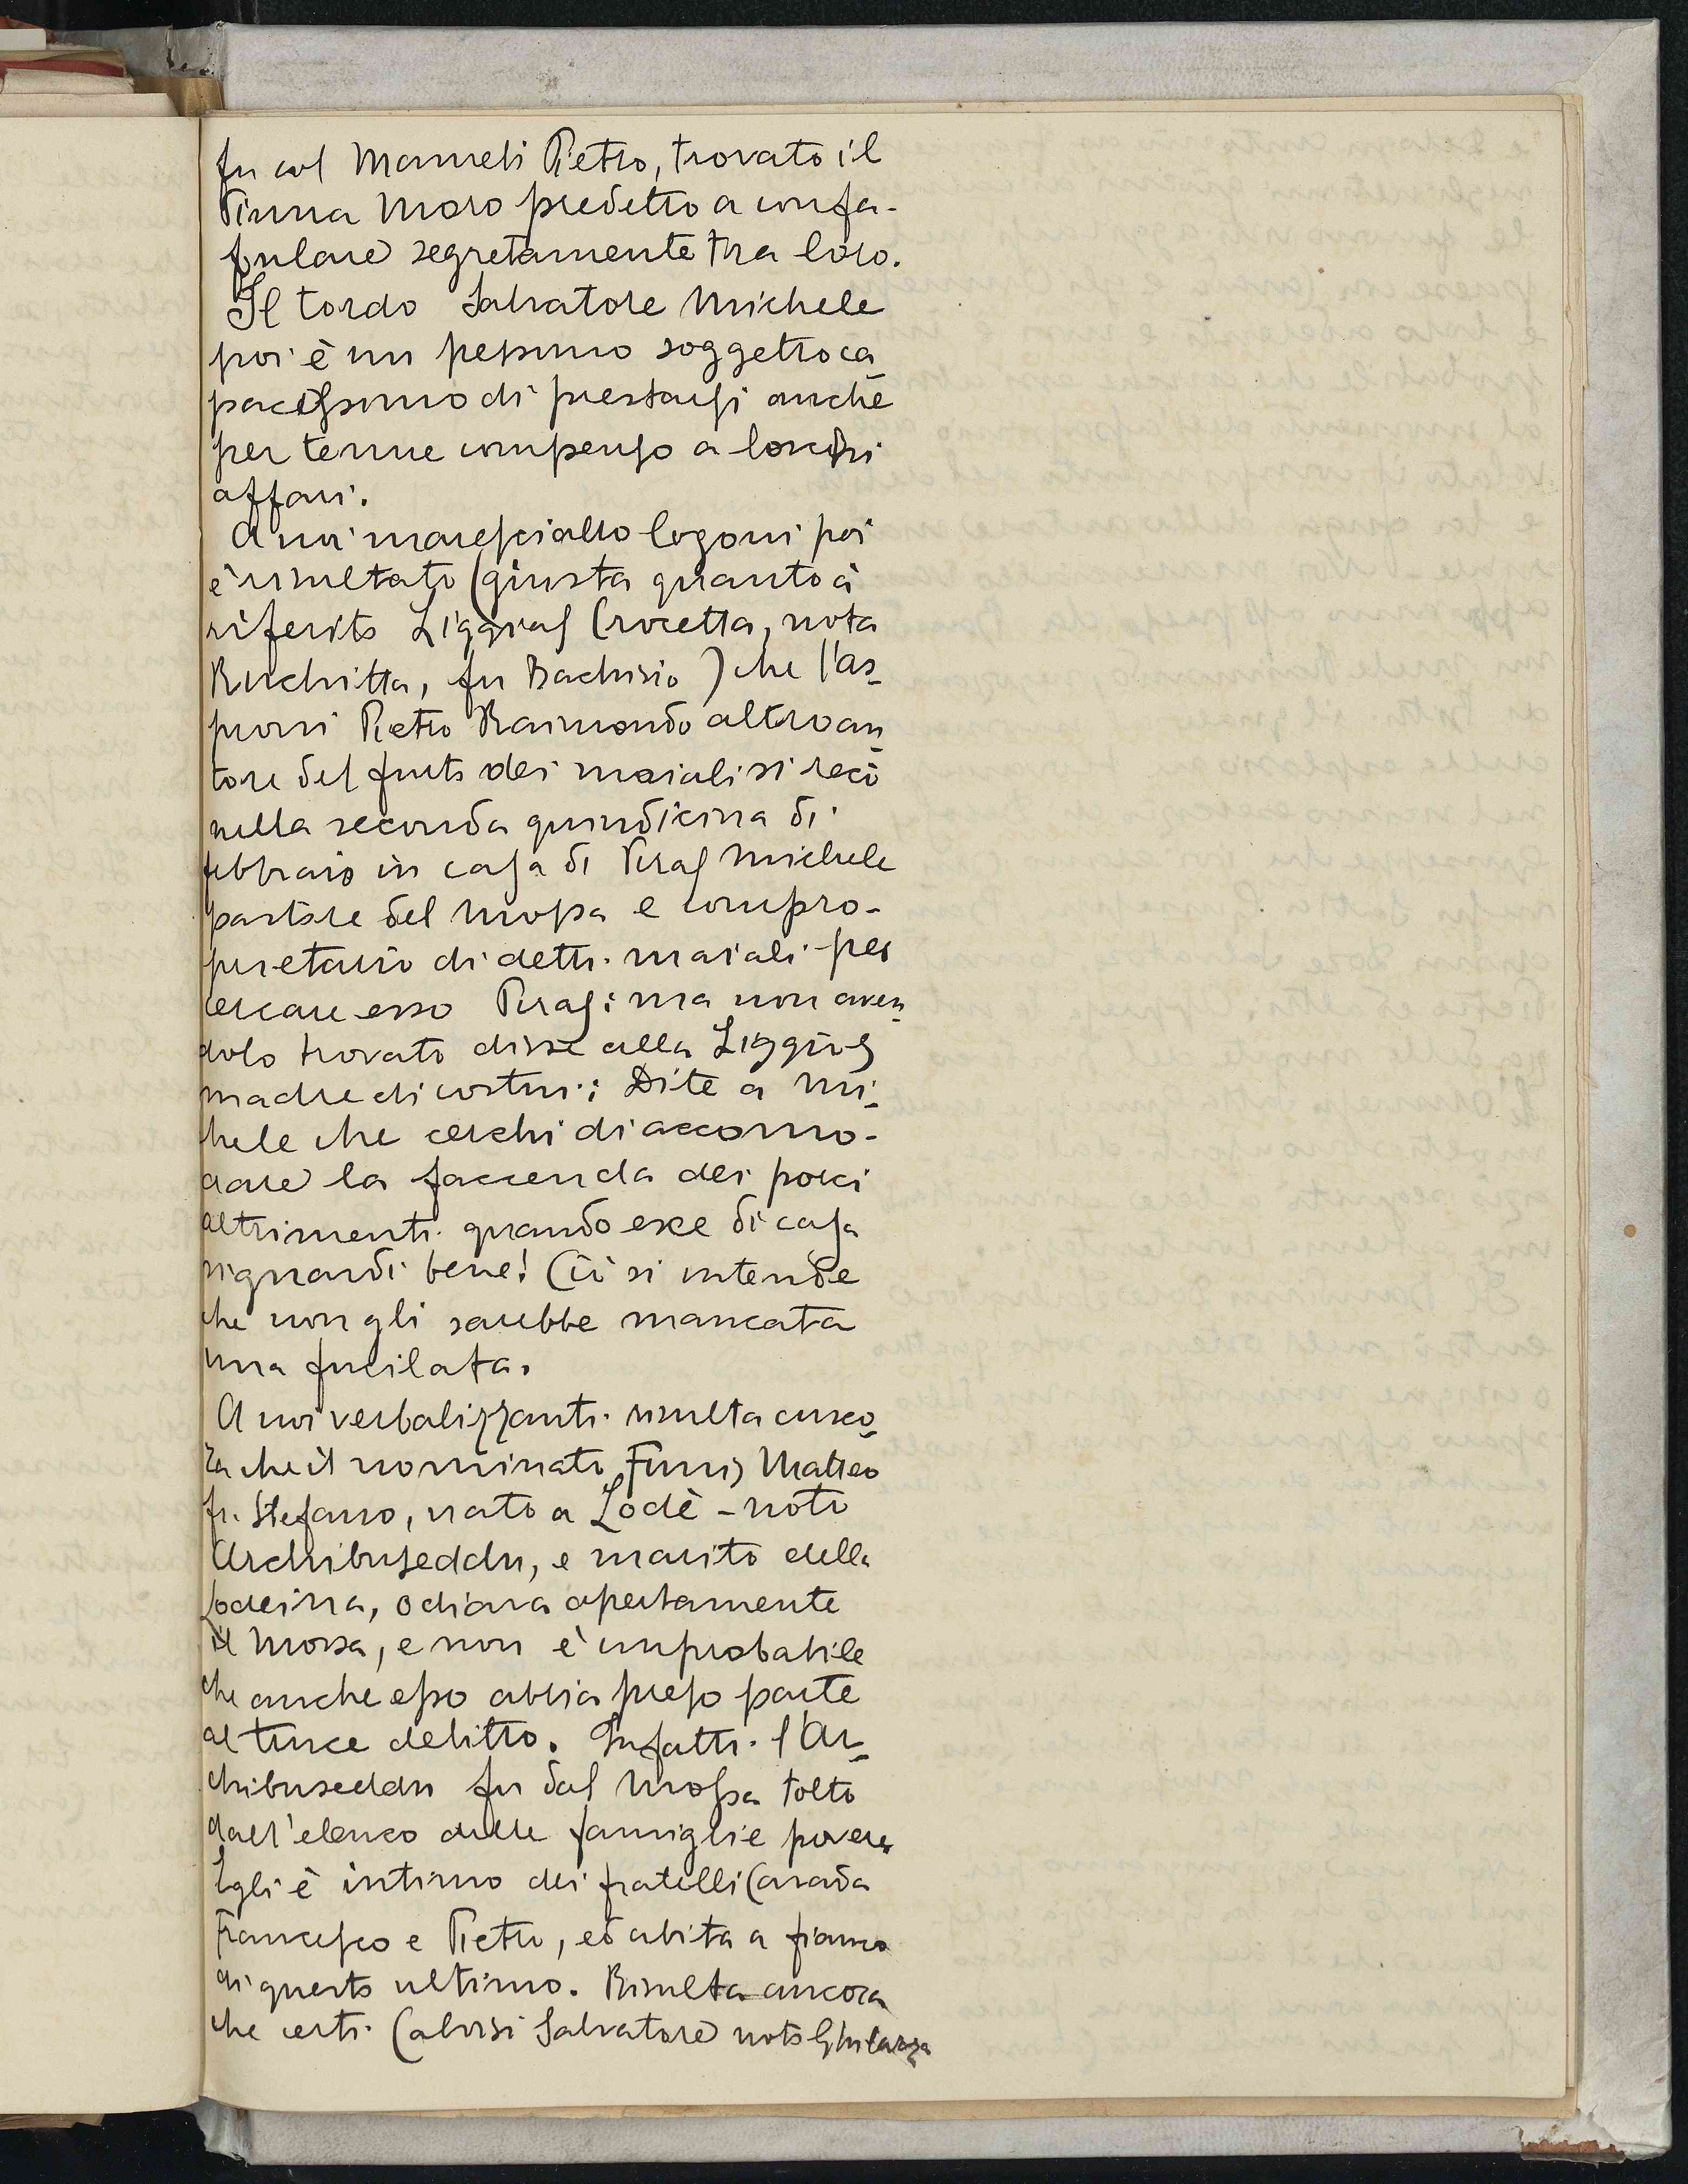 fu col Mameli Pietro, trovato il
Pinna Moro predetto a confa-
bulare segretamente tra loro.
Il tordo Salvatore Michele
poi è un pessimo soggetto ca
pacissimo di prestarsi anche
per tenue compenso a loschi
affari.
A noi maresciallo Logoni poi
è risultato (giusta quanto à
riferito Liggias Crocetta, nota
Ruchitta, fu Bachisio) che l'As
proni Pietro Raimondo altro au
tore del furto dei maiali si recò
nella seconda quindicina di
febbraio in casa di Piras Michele
pastore del Mossa e compro-
prietario di detti maiali per
cercare esso Piras: ma non aven
dolo trovato disse alla Liggias
madre di costui: Dite a Mi
chele che cerchi di accomo-
dare la faccenda dei porci
altrimenti quando esce di casa
riguardi bene! Ciò si intende
che non gli sarebbe mancata
una fucilata.
A noi verbalizzanti risulta anco
ra che il nominato Funis Matteo
fu Stefano, nato a Lodè - noto
Archibuseddu, e marito della
Lodeina, odiava apertamente
il Mossa, e non è improbabile
che anche esso abbia preso parte
al truce delitto. Infatti l'Ar
chibuseddu fu dal Mossa tolto
dall'elenco delle famiglie povere
Egli è intimo dei fratelli Carada
Francesco e Pietro, ed abita a fianco
di questo ultimo. Risulta ancora
che certi Calvisi Salvatore noto Ghilarza